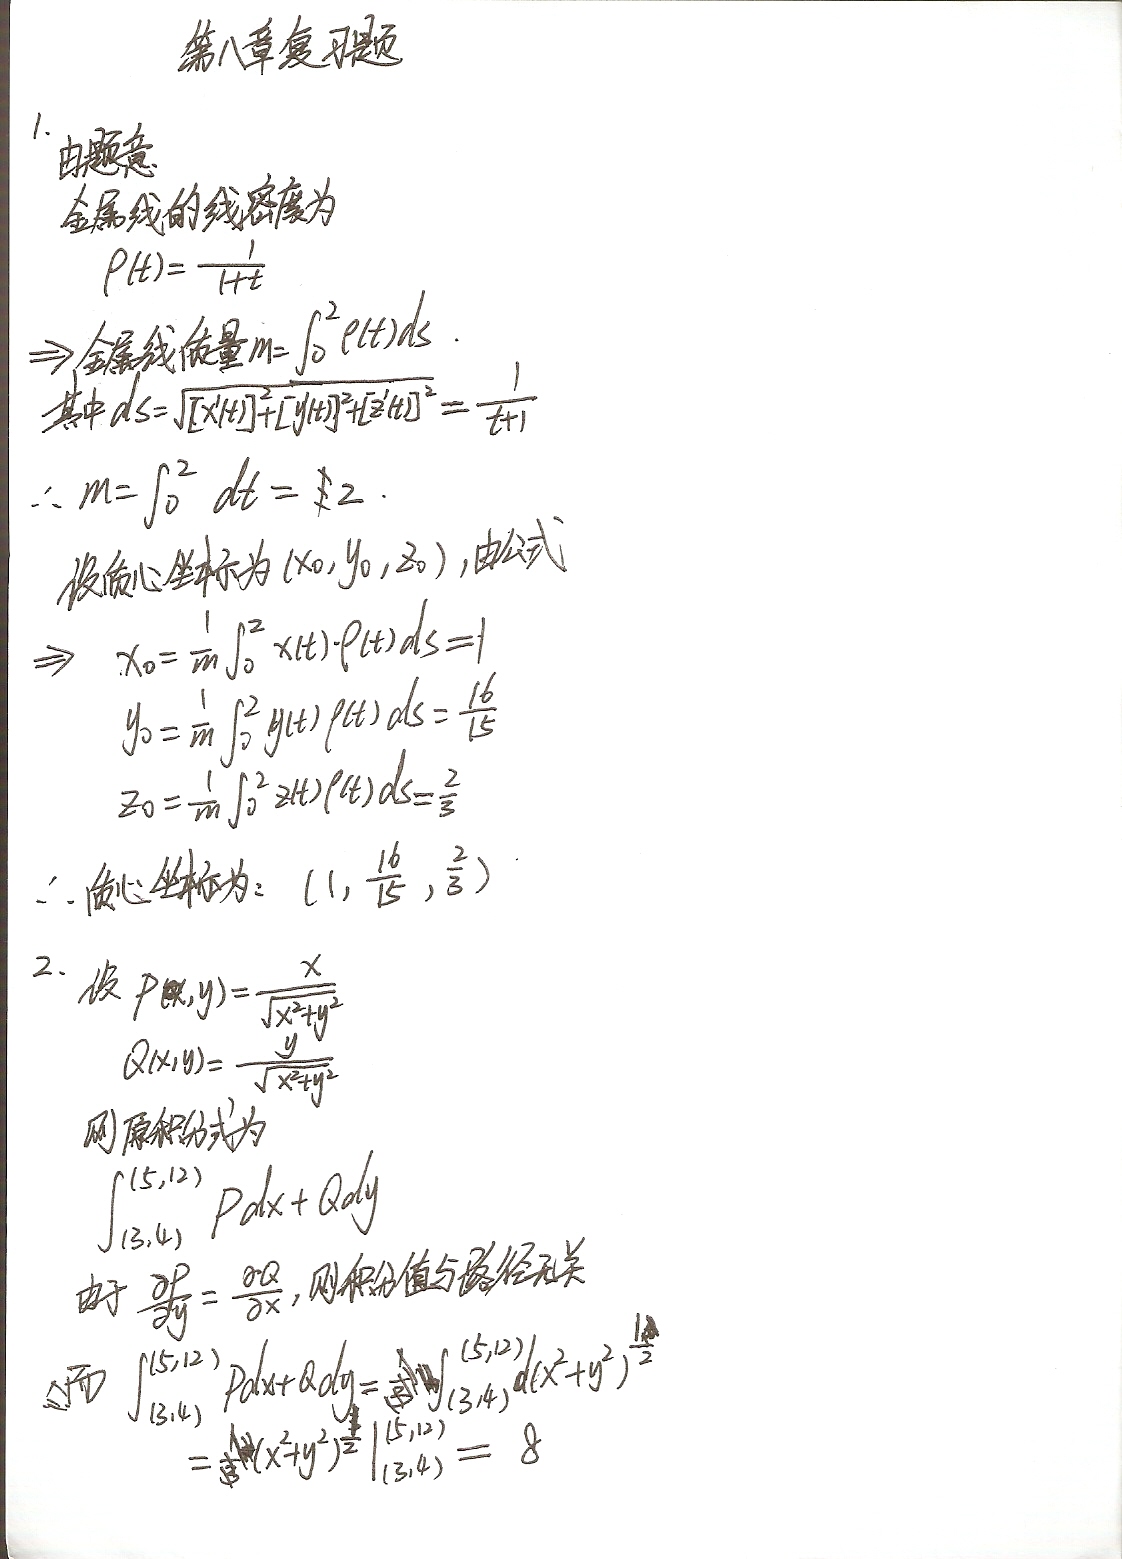 第八章复习题
1.
由题意
金属线的线密度为
ρ(t)=1/(1+t)
⇒金属线质量m=∫₀²ρ(t)ds.
其中ds=√([x'(t)]²+[y'(t)]²+[z'(t)]²)=1/(t+1)
∴ m=∫₀² dt=2.
设质心坐标为(x₀,y₀,z₀),由公式
⇒ x₀=1/m∫₀²x(t)·ρ(t)ds=1
y₀=1/m∫₀²y(t)ρ(t)ds=16/15
z₀=1/m∫₀²z(t)ρ(t)ds=2/3
∴质心坐标为: (1, 16/15, 2/3)
2. 设 P(x,y)=x/√(x²+y²)
Q(x,y)=y/√(x²+y²)
则原积分式为
∫_(3,4)^(5,12) Pdx+Qdy
由于 ∂P/∂y=∂Q/∂x,则积分值与路径无关
而 ∫_(3,4)^(5,12) Pdx+Qdy=∫_(3,4)^(5,12) d(x²+y²)^(1/2)
=(x²+y²)^(1/2)|_(3,4)^(5,12)=8